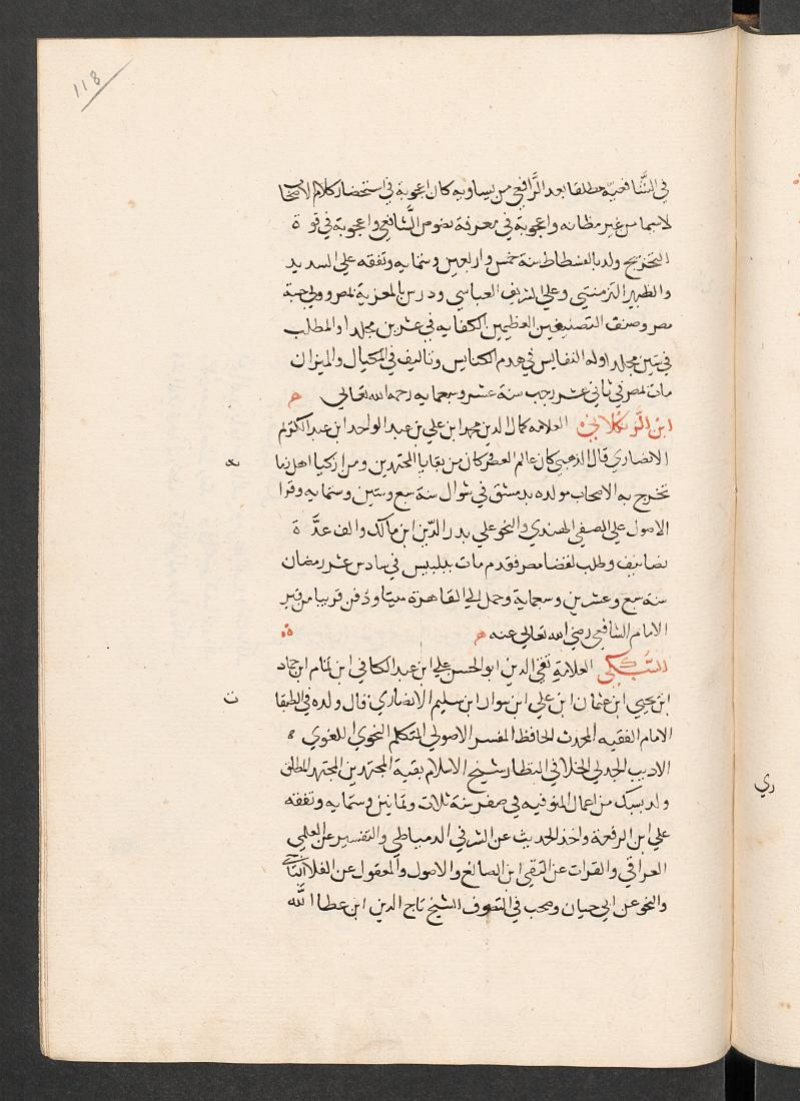 118
في الشافعية مطلقا بعد الرافعي من يساويه كان اعجوبة في استحضار كلام الاصحاب
لاسيما من غير مظانه واعجوبة في معرفة نصوص الشافعي واعجوبة في قوة
التخريج ولد بالفسطاط سنة خمس واربعين وستمايه وتفقه علي السديد
والظهير التزمنتي وعلي الشريف العباسي ودرس بالمعزية بمصر وولي حسبة
مصر وصنف التصنيفين العظيمين الكفايه في عشرين مجلدا والمطلب
في ستين مجلدا وله النفايس في هدم الكنايس وتاليف في المكيال والميزان
مات بمصر في ثاني عشر رجب سنة عشر وسبعمايه رحمه الله تعالي ه
ابن الزملكاني العلامه كمال الدين محمد ابن علي بن عبد الواحد ابن عبد الكريم
الانصاري قال الذهبي كان عالم العصر كان من بقايا المجتهدين ومن اذكيا اهل زمانه
تخرج به الاصحاب مولده بدمشق في شوال سنة سبع وستين وستمايه وقرا
الاصول علي الصفي الهندي والنحو علي بدر الدين ابن مالك والف عدة
تصانيف وطلب لقضا مصر فقدم مات ببلبيس في سادس عشر رمضان
سنة سبع وعشرين وسبعماية وحمل الي القاهرة ميتا ودفن قريبا من قبر
الامام الشافعي رضي الله تعالي عنه ه ه
السبكي العلامة تقي الدين ابو الحسن علي ابن عبد الكافي ابن تمام ابن حماد
ابن يحيي ابن عثمان ابن علي ابن سوار ابن سليم الانصاري قال ولده في الطبقات
الامام الفقيه المحدث الحافظ المفسر الاصولي المتكلم النحوي اللغوي ه
الاديب الجدلي الخلافي النظار شيخ الاسلام بقية المجتهدين المجتهد المطلق
ولد بسبك من اعمال المنوفيه في صفر سنة ثلاث وثمانين وستمايه وتفقه
علي ابن الرفعة واخذ الحديث عن الشرف الدمياطي والتفسير عن العلمي
العراقي والقرات عن التقي ابن الصائغ والاصول والمعقول عن العلا الباجي
والنحو عن ابي حيان وصحب في التصوف الشيخ تاج الدين ابن عطا الله
ري